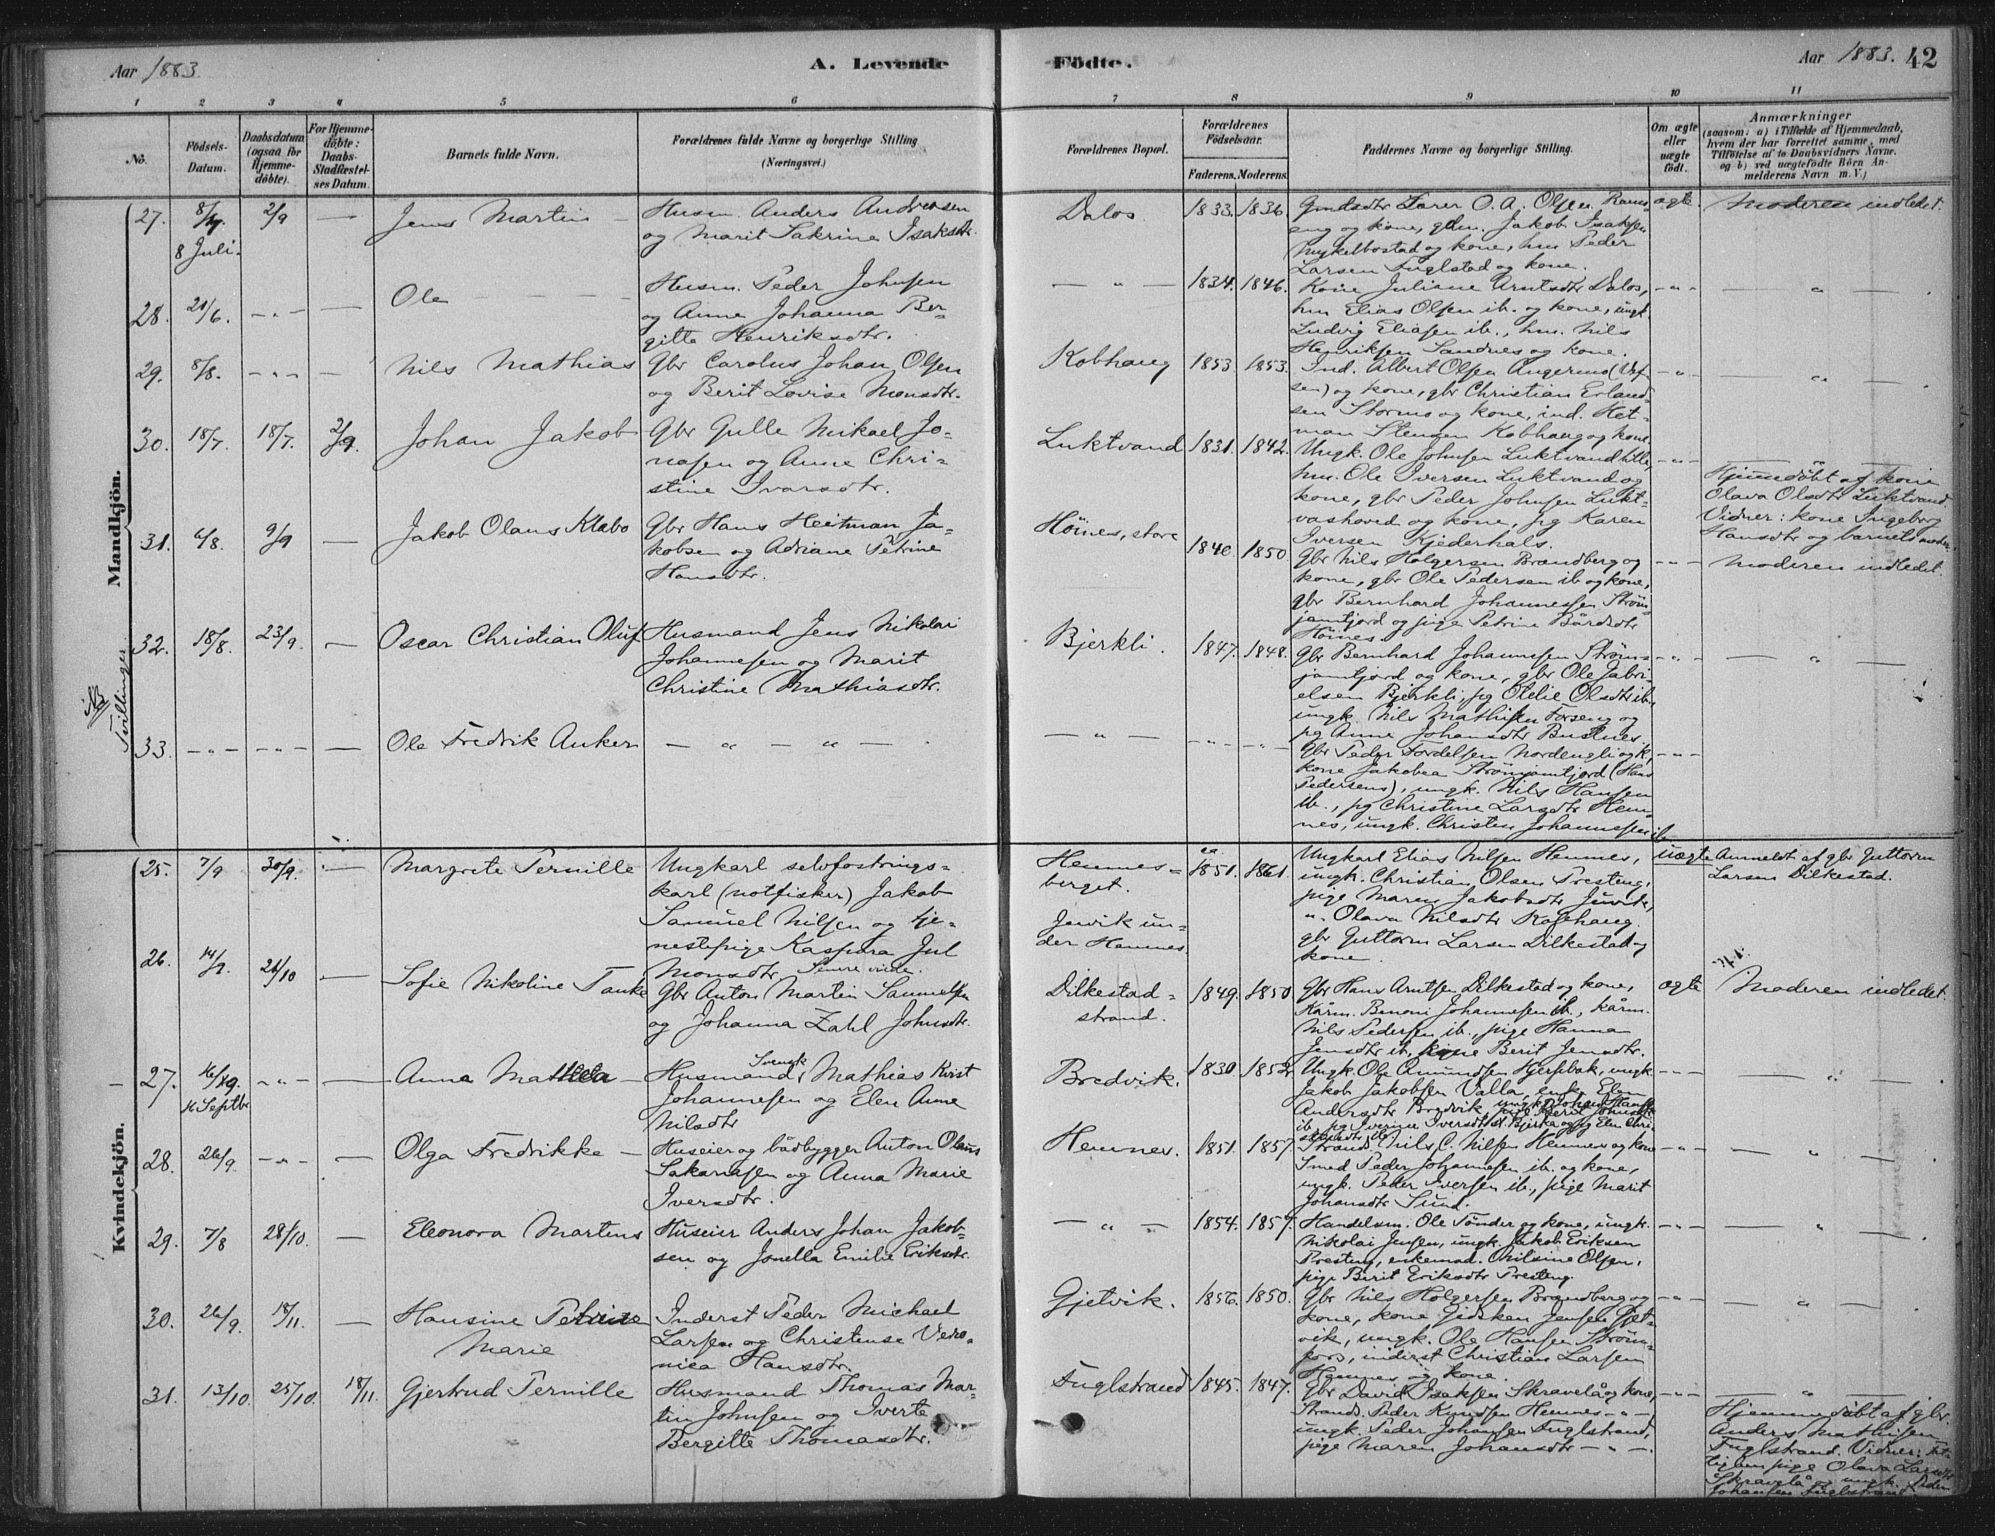 Aar 1883.
A. Levende
Födte.
Aar 1883. 42
1 2 3 4 5 6 7 8 9 10 11
No.
Födsels-Datum.
Daabsdatum (ogsaa for Hjemmedöbte).
For Hjemmedöbte: Daabs-Stadfæstelses Datum.
Barnets fulde Navn.
Forældrenes fulde Navne og borgerlige Stilling
(Næringsvei.)
Forældrenes Bopæl.
Forældrenes Födselsaar.
Faderens. Moderens.
Faddernes Navne og borgerlige Stilling.
Om ægte eller uægte födt.
Anmærkninger
(saasom: a) i Tilfælde af Hjemmedaab, hvem der har forrettet samme, med Tilföielse af to Daabsvidners Navne, og b) ved uægtefödte Börn Anmelderens Navn m. V.)
Mandkjön.
27. 8/7 2/9 — Jens Martin — Husm. Anders Andersen
8 Juli.
og Marit Sakrine Isaksdtr.
Dalos 1833. 1836.
O. A. Olsen
og kone, gbm. Jakob Isaksen
Mykelbostad og kone, hm Peder
Larsen Fuglstad og kone.
ægte. Moderen indledet.
28. 21/6. — " — — Ole
Husm. Peder Johnsen
og Anne Johanna Ber-
gitte Henriksdtr.
— " — 1834. 1846.
Kone Juliane Arntsdtr Dalos,
hm Elias Olsen ib. og kone, ungk.
Ludvig Eliasen ib., hm. Nils
Henriksen Sandnes og kone.
— " — — " —
29. 8/8. — " — — Nils Mathias
Gbr Carolus Johan Olsen
og Berit Lovise Monsdtr.
Kobhaug 1853. 1853.
Ind. Albert Olsen
og kone, gbr Christian Erland-
sen Stormo og kone, ind. Het-
man Stensen Kobhaug og kone.
— " — — " —
30. 18/7. 18/7. 2/9. Johan Jakob
Gbr Gulle Mikael Jo-
nasen og Anne Chri-
stine Ivarsdtr.
Luktvand 1831. 1842.
Ungk. Ole Johnsen Luktvandlille,
hm. Ole Iversen Luktvand og
kone, gbr Peder Johnsen Lukt-
vashoved og kone, pg Karen
Iversen Kjederhals.
— " — — " —
Hjemmedöbt af kone
Olava Olsdtr Luktvand.
Vidner: kone Ingeborg
Hansdtr og barnets moder.
31. 6/8. 9/9 — Jakob Olaus Klæbo
Gbr Hans Heitman Ja-
kobsen og Adriane Petrine
Hansdtr.
Höines, store 1840. 1850.
Gbr Nils Holgersen Brandberg og
kone, gbr Ole Pedersen ib og kone,
gbr Bernhard Johannessen Ström-
jamtjord og pige Petrine Bårdsdtr
Höines.
— " — Moderen indledet.
Tvillinger
NB
32. 18/8. 23/9. — Oscar Christian Oluf
Husmand Jens Nikolai
Johannesen og Marit
Christine Mathiasdtr.
Bjerkli. 1847. 1848.
Gbr Bernhard Johannesen Ström-
jamtjord og kone, gbr Ole Gabri-
elsen Bjerkli, pg Odelie Olsdtr ib,
ungk. Nils Mathisen Forseng og
pg Anne Johansdtr Bustnes
— " — — " —
33. — " — — " — — Ole Fredrik Anker — " — " —
— " — — " — — " —
Gbr Peder Fordelsen Nordengli og k,
kone Jakobea Strömjamtjord (Hans
Pedersens), ungk. Nils Hansen
ib., pg Christine Larsdtr Hem-
nes, ungk. Christen Johannesen ib
— " —
Kvindekjön.
25. 7/9 30/9. — Margrete Pernille
Ungkarl selvfostrings-
karl (notfisker) Jakob
Samuel Nilsen og tje-
nestepige Kaspara Jul
Monsdtr
Hemnes-
berget.
Jervik un-
der Hemnes.
ca.
1851. 1861.
Ungkarl Elias Nilsen Hemnes,
ungk. Christian Olsen Presteng,
pige Maren Jakobsdtr
" Olava Nilsdtr
gbr Guttorm Larsen Dilkestad og
kone.
uægte Anmeldt af gbr Guttorm
Larsen Dilkestad.
26. 14/9. 21/10 — Sofie Nikoline Tanke
Gbr Anton Martin Samuelsen
og Johanna Zahl Johnsdtr.
Dilkestad-
strand.
1849. 1850
Gbr Hans Arntsen Dilkestad og kone,
kårm. Benoni Johannesen ib., kårm.
Nils Pedersen ib., pige Hanna
Jensdtr ib. Berit Jensdtr.
ægte Moderen indledet.
27. 16/9. — " — — Anna Mathea —
Septbr
Svensk
Husmand, Mathias Kvist
Johannesen og Elen Anne
Nilsdtr
Bredvik. 1830. 1852
Ungk. Ole Amundsen Hjerpbak, ungk
Jakob Jakobsen Valla, Elen
Andersdtr Bredvik
— " — — " —
28. 26/9. — " — — Olga Fredrikke —
Huseier og bådbygger Anton Olaus
Sakariasen og Anna Marie
Iversdtr.
Hemnes. 1851. 1857.
Strands. Nils C. Nilsen Hemnes og kone
Smed Peder Johannesen ib. og kone,
ungk. Peder Iversen ib., pige Marit
Johansdtr Sund.
— " — — " —
29. 7/8 28/10. — Eleonora Martens
Huseier Anders Johan Jakob-
sen og Jonella Emilie Eriksdtr.
— " — 1854. 1857.
Handelsm. Ole Tönder og kone, ungk.
Nikolai Jensen, ungk. Jakob Eriksen
Presteng, enkemad. Nilsine Olsen,
pige Berit Eriksdtr Presteng.
— " — — " —
30. 26/9. 18/11. — Hansine Petrine
Marie
Inderst Peder Michael
Larsen og Christense Vero-
nica Hansdtr.
Gjetvik. 1856. 1850.
Gbr Nils Holgersen Brandberg og
kone, kone Gidsken Jensen Gjet-
vik, ungk. Ole Hansen Ström-
fors, inderst Christian Larsen
Hemnes og kone.
— " — — " —
31. 13/10. 25/10. 18/11. Gjertrud Pernille
Husmand Thomas Mar-
tin Johnsen og Iverte
Bergitte Thomasdtr.
Fuglstrand 1845. 1847.
Gbr David Isaksen Skravelå og kone,
Strands. Peder Knudsen Hemnes — " —
ungk. Peder Johansen Fuglstrand,
pige Maren Johansdtr — " —
— " — — " —
Hjemmedöbt af gbr.
Anders Mathisen
Fuglstrand. Vidner:
pige Olava Larsdtr
Skravelå og ungk. Peder
Johansen Fuglstrand.